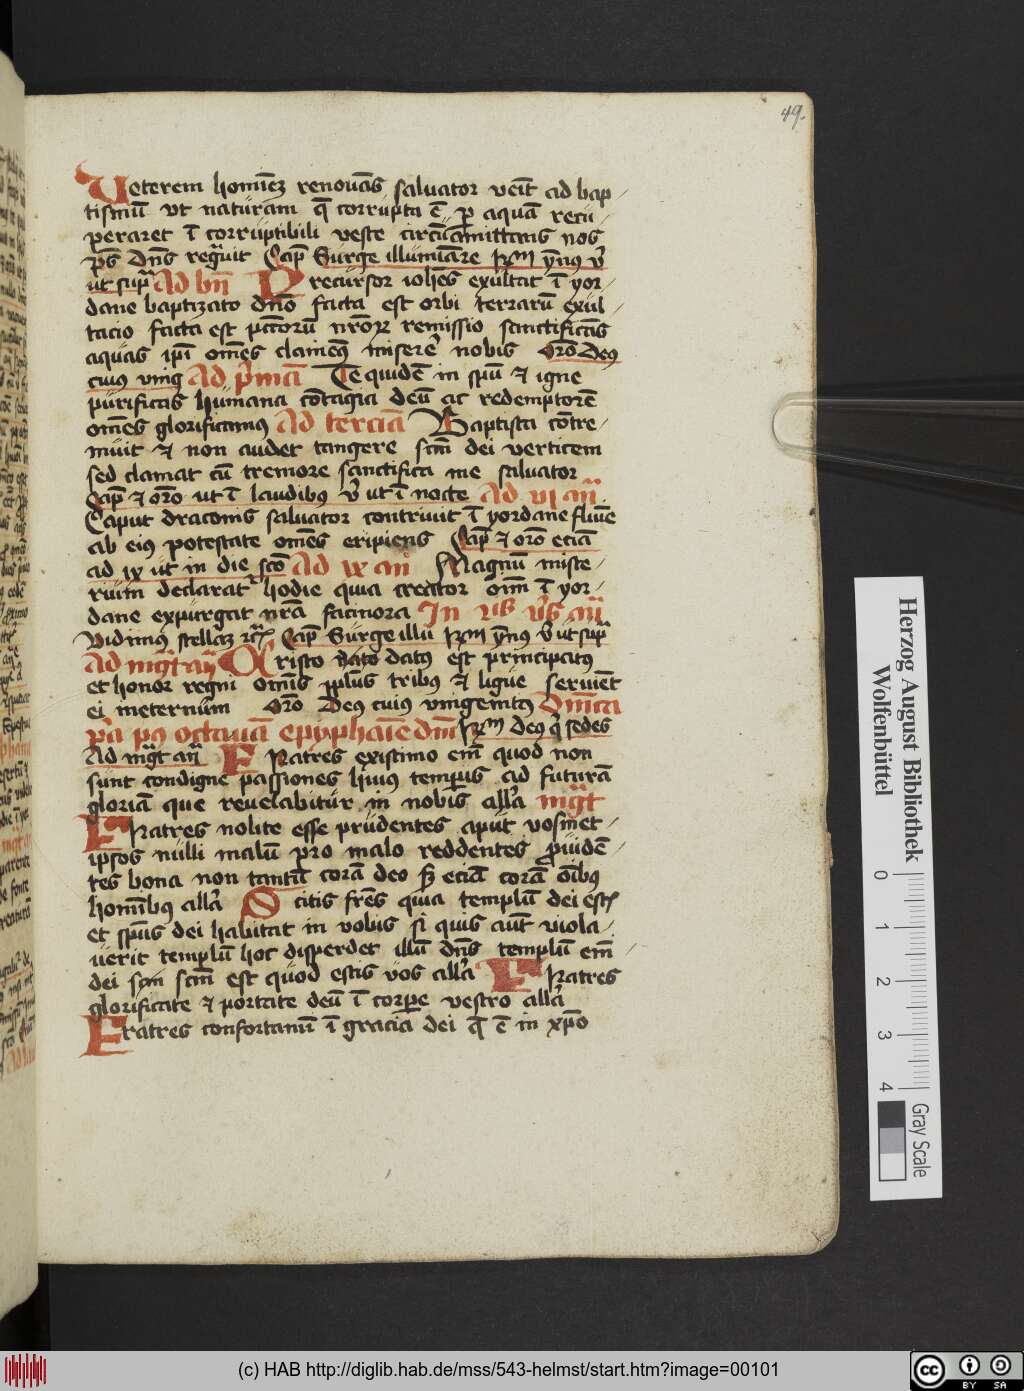 49.
Veterem homīez renouās saluator veīt ad bap
tismū vt naturam q̄ corrupta ē p̱ aquā recu
peraret ī corruptibili veste circūamittans nos
p̄s Dn̄s req̄uit Cap̄ Surge illumiāre Ihrlm ỹnus v̄
ut sup̄ Ad bn̄ Precursor ioh̄es exultat ī yor
dane baptizato dn̄o facta est orbi terrarū exul
tacio facta est pc̄torū nr̄oꝝ remissio sanctificās
aquas ip̄i om̄es clamem̄9 miserē nobis Or̄o Deus
cuius vnig Ad p̄mā Te quidē in spū ⁊ igne
purificas humana cōtagia deū ac redemptorē
om̄es glorificamus Ad terciā Baptista cōtre
muit ⁊ non audet tangere sc̄m dei verticem
sed clamat cū tremore sanctifica me saluator
Cap̄ ⁊ or̄o ut ī laudibus v̄ ut ī nocte Ad vi an̄
Caput draconis saluator contriuit ī yordane fluīe
ab eius potestate om̄es eripiens Cap̄ ⁊ or̄o eciā
ad ix ut in die sc̄o Ad ix an̄ Magnū miste
rium declarat᷑ hodie quia creator om̄ī ī yor
dane expurgat nr̄a facinora In vs̄ v̄s an̄
Vidimus stellaz ⁊c̄ Cap̄ Surge illū Ihrlm ỹnus v̄ ut sup̄
Ad mg̃t an̄ Cristo nato datus est principatus
et honor regni om̄is pplūs tribus ⁊ ligue seruiēt
ei ineternum Or̄o Deus cuius vnigenitus Dn̄ica
p̄a p9 octauā epyphaīe dn̄i Ihrlm deus q̄ sedes
Ad mg̃t an̄ Fratres existimo em̄ quod non
sunt condigne passiones huius temp̱is ad futurā
gloriā que reuelabitur in nobis all'a mg̃t
Fratres nolite esse prudentes aput vosmet
ipsos nulli malū pro malo reddentes ꝓuidē
tes bona non tantū corā deo s̄ eciā corā oībus
homībus all'a Scitis fr̄es quia templū dei est
et sp̄us dei habitat in vobis si quis aūt viola
uerit templū hoc disperdet illū dn̄s templū em̄
dei sc̄m est quod estis vos all'a Fratres
glorificate ⁊ portate deū ī corp̱e vestro all'a
Fratres confortamī ī gracia dei q̄ ē in xp̄o
Herzog August Bibliothek
Wolfenbüttel
0 1 2 3 4
Gray Scale
(c) HAB http://diglib.hab.de/mss/543-helmst/start.htm?image=00101
cc BY SA